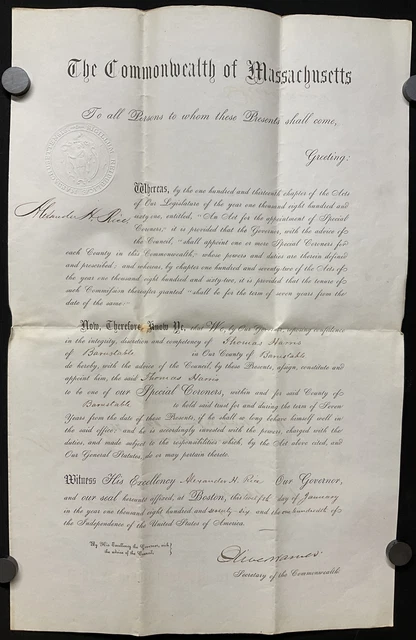 The Commonwealth of Massachusetts
To all Persons to whom these Presents shall come,
Greeting:
Whereas, by the one hundred and thirteenth chapter of the Acts
Alexander H. Rice
of Our Legislature of the year one thousand eight hundred and
sixty-one, entitled, "An Act for the appointment of Special
Coroners," it is provided that the Governor, with the advice of
the Council, "shall appoint one or more Special Coroners for
each County in this Commonwealth," whose powers and duties are therein defined
and prescribed; and whereas, by chapter one hundred and seventy-two of the Acts of
the year one thousand eight hundred and sixty-two, it is provided that the tenure of
each Commission thereafter granted "shall be for the term of seven years from the
date of the same"
Now, Therefore, Know Ye, that We, by Our Governor, reposing confidence
in the integrity, discretion and competency of Thomas Harris
of Barnstable in Our County of Barnstable
do hereby, with the advice of the Council, by these Presents, assign, constitute and
appoint him, the said Thomas Harris
to be one of our Special Coroners, within and for said County of
Barnstable to hold said trust for and during the term of Seven
Years from the date of these Presents, if he shall so long behave himself well in
the said office; and he is accordingly invested with the powers, charged with the
duties, and made subject to the responsibilities which, by the Act above cited, and
Our General Statutes, do or may pertain thereto.
Witness His Excellency Alexander H. Rice Our Governor,
and our seal hereunto affixed, at Boston, this day of January
in the year one thousand eight hundred and seventy-six and the one hundredth of
the Independence of the United States of America.
By His Excellency the Governor, with
the advice of the Council.
Oliver Warner
Secretary of the Commonwealth